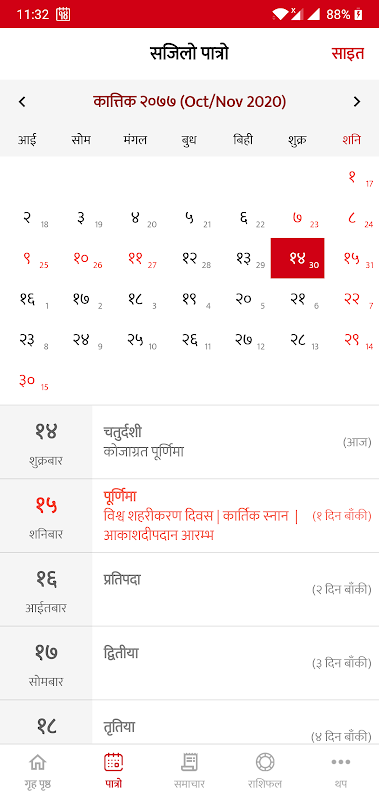 11:32 88%
सजिलो पात्रो साइत
कात्तिक २०७७ (Oct/Nov 2020)
आई सोम मंगल बुध बिही शुक्र शनि
१ 17
२ 18 ३ 19 ४ 20 ५ 21 ६ 22 ७ 23 ८ 24
९ 25 १० 26 ११ 27 १२ 28 १३ 29 १४ 30 १५ 31
१६ 1 १७ 2 १८ 3 १९ 4 २० 5 २१ 6 २२ 7
२३ 8 २४ 9 २५ 10 २६ 11 २७ 12 २८ 13 २९ 14
३० 15
१४ चतुर्दशी
शुक्रबार कोजाग्रत पूर्णिमा (आज)
१५ पूर्णिमा
शनिबार विश्व शहरीकरण दिवस | कार्तिक स्नान | (१ दिन बाँकी)
आकाशदीपदान आरम्भ
१६ प्रतिपदा (२ दिन बाँकी)
आईतबार
१७ द्वितीया (३ दिन बाँकी)
सोमबार
१८ तृतिया (४ दिन बाँकी)
गृह पृष्ठ पात्रो समाचार राशिफल थप